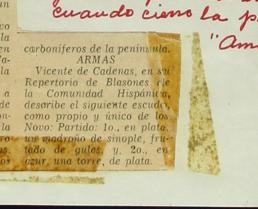 cuando cierro la p
"Am
carboníferos de la península.
ARMAS
Vicente de Cadenas, en su
Repertorio de Blasones de
la Comunidad Hispánica,
describe el siguiente escudo,
como propio y único de los
Novo: Partido: 1o., en plata,
un madroño de sinople, fru-
tado de gules, y, 2o., en
azur, una torre, de plata.